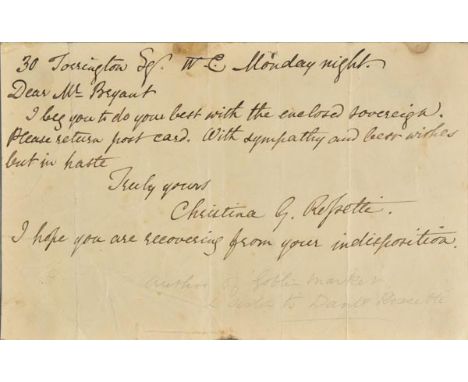 30 Torrington Sq. W C Monday night.
Dear Mr Bryant
I beg you to do your best with the enclosed sovereign.
Please return post card. With sympathy and best wishes
but in haste
Truly yours
Christina G. Rossetti.
I hope you are recovering from your indisposition.
Author of Goblin Market
& sister to Dante Rossetti